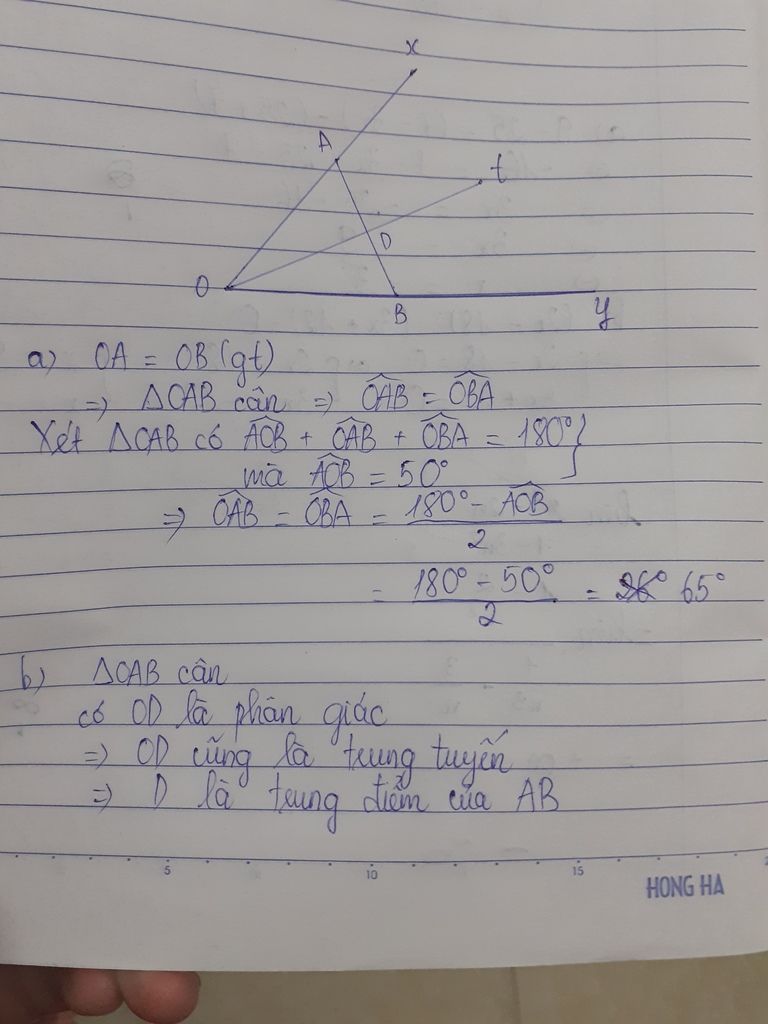 x
A
t
D
O
B
y
a) OA = OB (gt)
=> ΔOAB cân => \widehat{OAB} = \widehat{OBA}
Xét ΔOAB có \widehat{AOB} + \widehat{OAB} + \widehat{OBA} = 180° }
mà \widehat{AOB} = 50°
=> \widehat{OAB} = \widehat{OBA} = \frac{180° - \widehat{AOB}}{2}
= \frac{180° - 50°}{2} = 65°
b) ΔOAB cân
có OD là phân giác
=> OD cũng là trung tuyến
=> D là trung điểm của AB
5 10 15
HONG HA